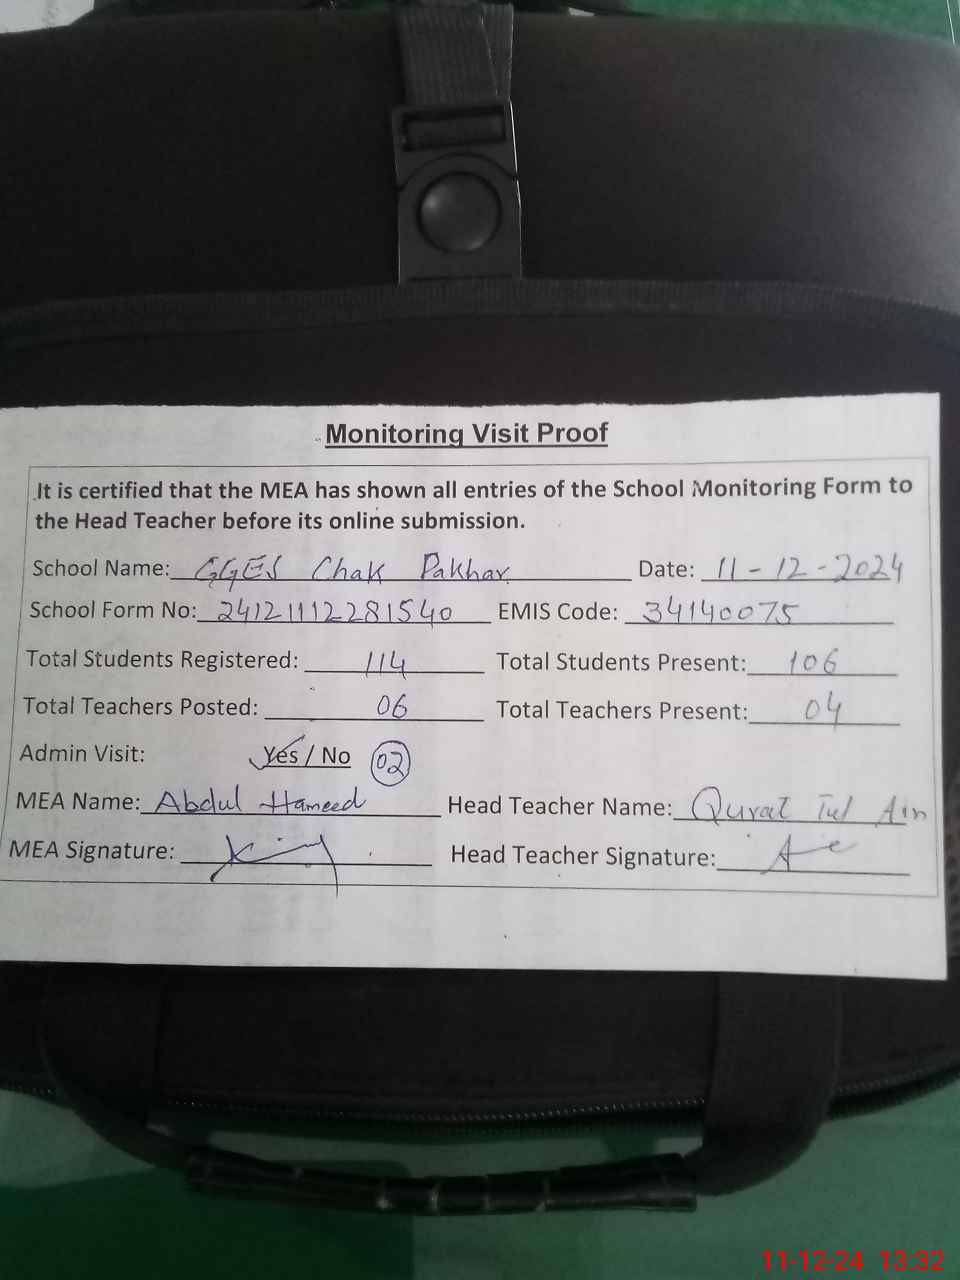 Monitoring Visit Proof
It is certified that the MEA has shown all entries of the School Monitoring Form to
the Head Teacher before its online submission.
School Name: GGES Chak Pakhar Date: 11-12-2024
School Form No: 24121112281540 EMIS Code: 34140075
Total Students Registered: 114 Total Students Present: 106
Total Teachers Posted: 06 Total Teachers Present: 04
Admin Visit: Yes / No 02
MEA Name: Abdul Hameed Head Teacher Name: Qurat Tul Ain
MEA Signature: Head Teacher Signature:
11-12-24 13:32